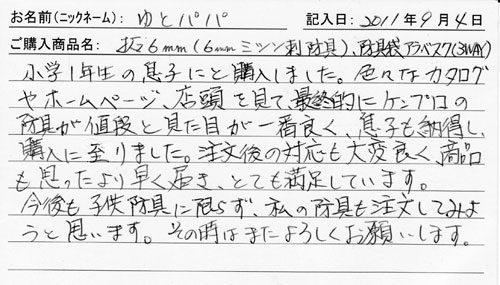 お名前(ニックネーム): ゆとパパ 記入日: 2011年9月4日
ご購入商品名: 拓6mm(6mmミツン刺防具)、防具袋アラベスク(3WAY)
小学1年生の息子にと購入しました。色々なカタログ
やホームページ、店頭を見て、最終的にケンプロの
防具が値段と見た目が一番良く、息子も納得し、
購入に至りました。注文後の対応も大変良く、商品
も思ったより早く届き、とても満足しています。
今後も子供防具に限らず、私の防具も注文してみよ
うと思います。その時はまたよろしくお願いします。